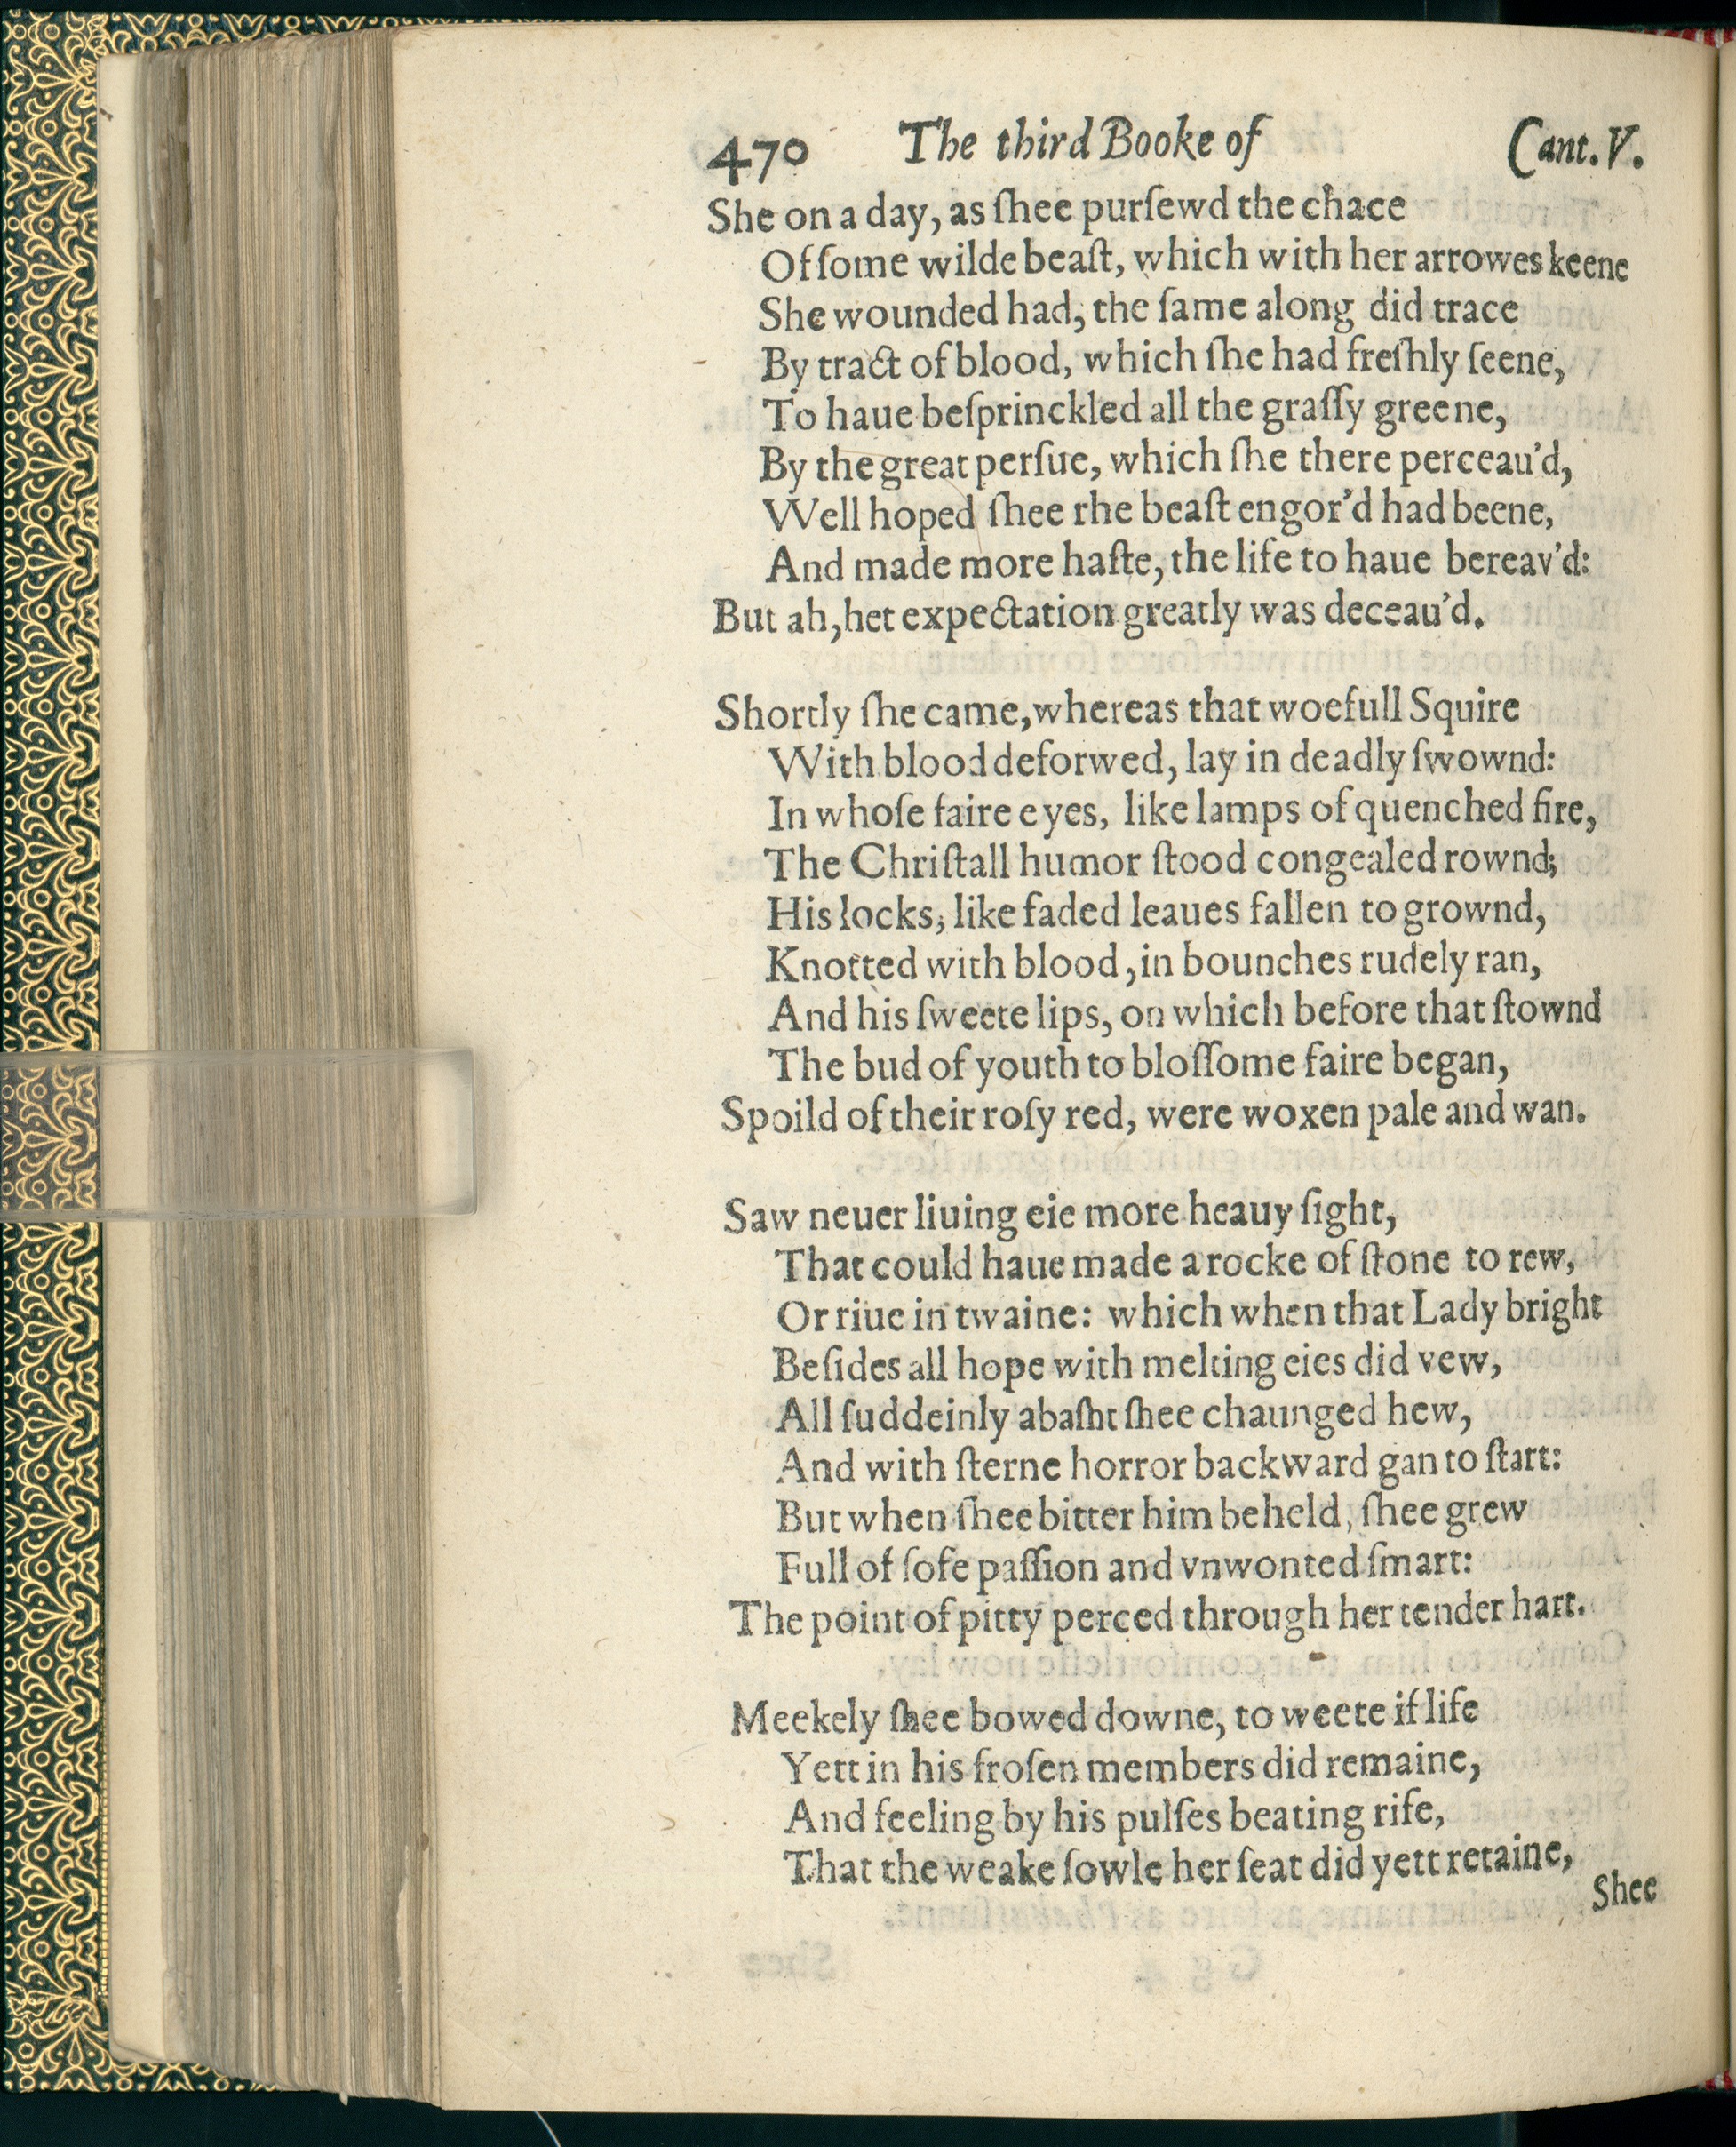 470 The third Booke of Cant. V.
She on a day, as ſhee purſewd the chace
Of ſome wilde beaſt, which with her arrowes keene
She wounded had, the ſame along did trace
By tract of blood, which ſhe had freſhly ſeene,
To haue beſprinckled all the graſſy greene,
By the great perſue, which ſhe there perceau'd,
Well hoped ſhee rhe beaſt engor'd had beene,
And made more haſte, the life to haue bereav'd:
But ah, het expectation greatly was deceau'd.
Shortly ſhe came, whereas that woefull Squire
With blood deforwed, lay in deadly ſwownd:
In whoſe faire eyes, like lamps of quenched fire,
The Chriſtall humor ſtood congealed rownd;
His locks, like faded leaues fallen to grownd,
Knotted with blood, in bounches rudely ran,
And his ſweete lips, on which before that ſtownd
The bud of youth to bloſſome faire began,
Spoild of their roſy red, were woxen pale and wan.
Saw neuer liuing eie more heauy ſight,
That could haue made a rocke of ſtone to rew,
Or riue in twaine: which when that Lady bright
Beſides all hope with melting eies did vew,
All ſuddeinly abaſht ſhee chaunged hew,
And with ſterne horror backward gan to ſtart:
But when ſhee bitter him beheld, ſhee grew
Full of ſofe paſſion and vnwonted ſmart:
The point of pitty perced through her tender hart.
Meekely ſhee bowed downe, to weete if life
Yett in his froſen members did remaine,
And feeling by his pulſes beating rife,
That the weake ſowle her ſeat did yett retaine,
Shee